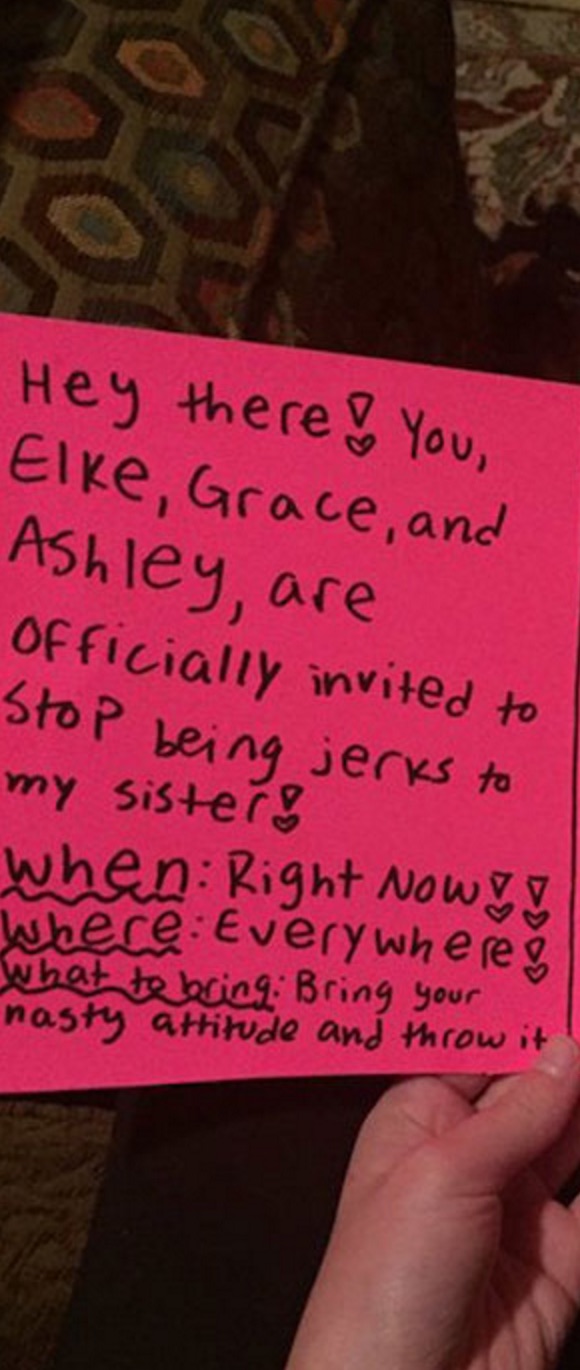 Hey there! You,
Elke, Grace, and
Ashley, are
officially invited to
stop being jerks to
my sister!
when: Right Now!!
where: Everywhere!
what to bring: Bring your
nasty attitude and throw it